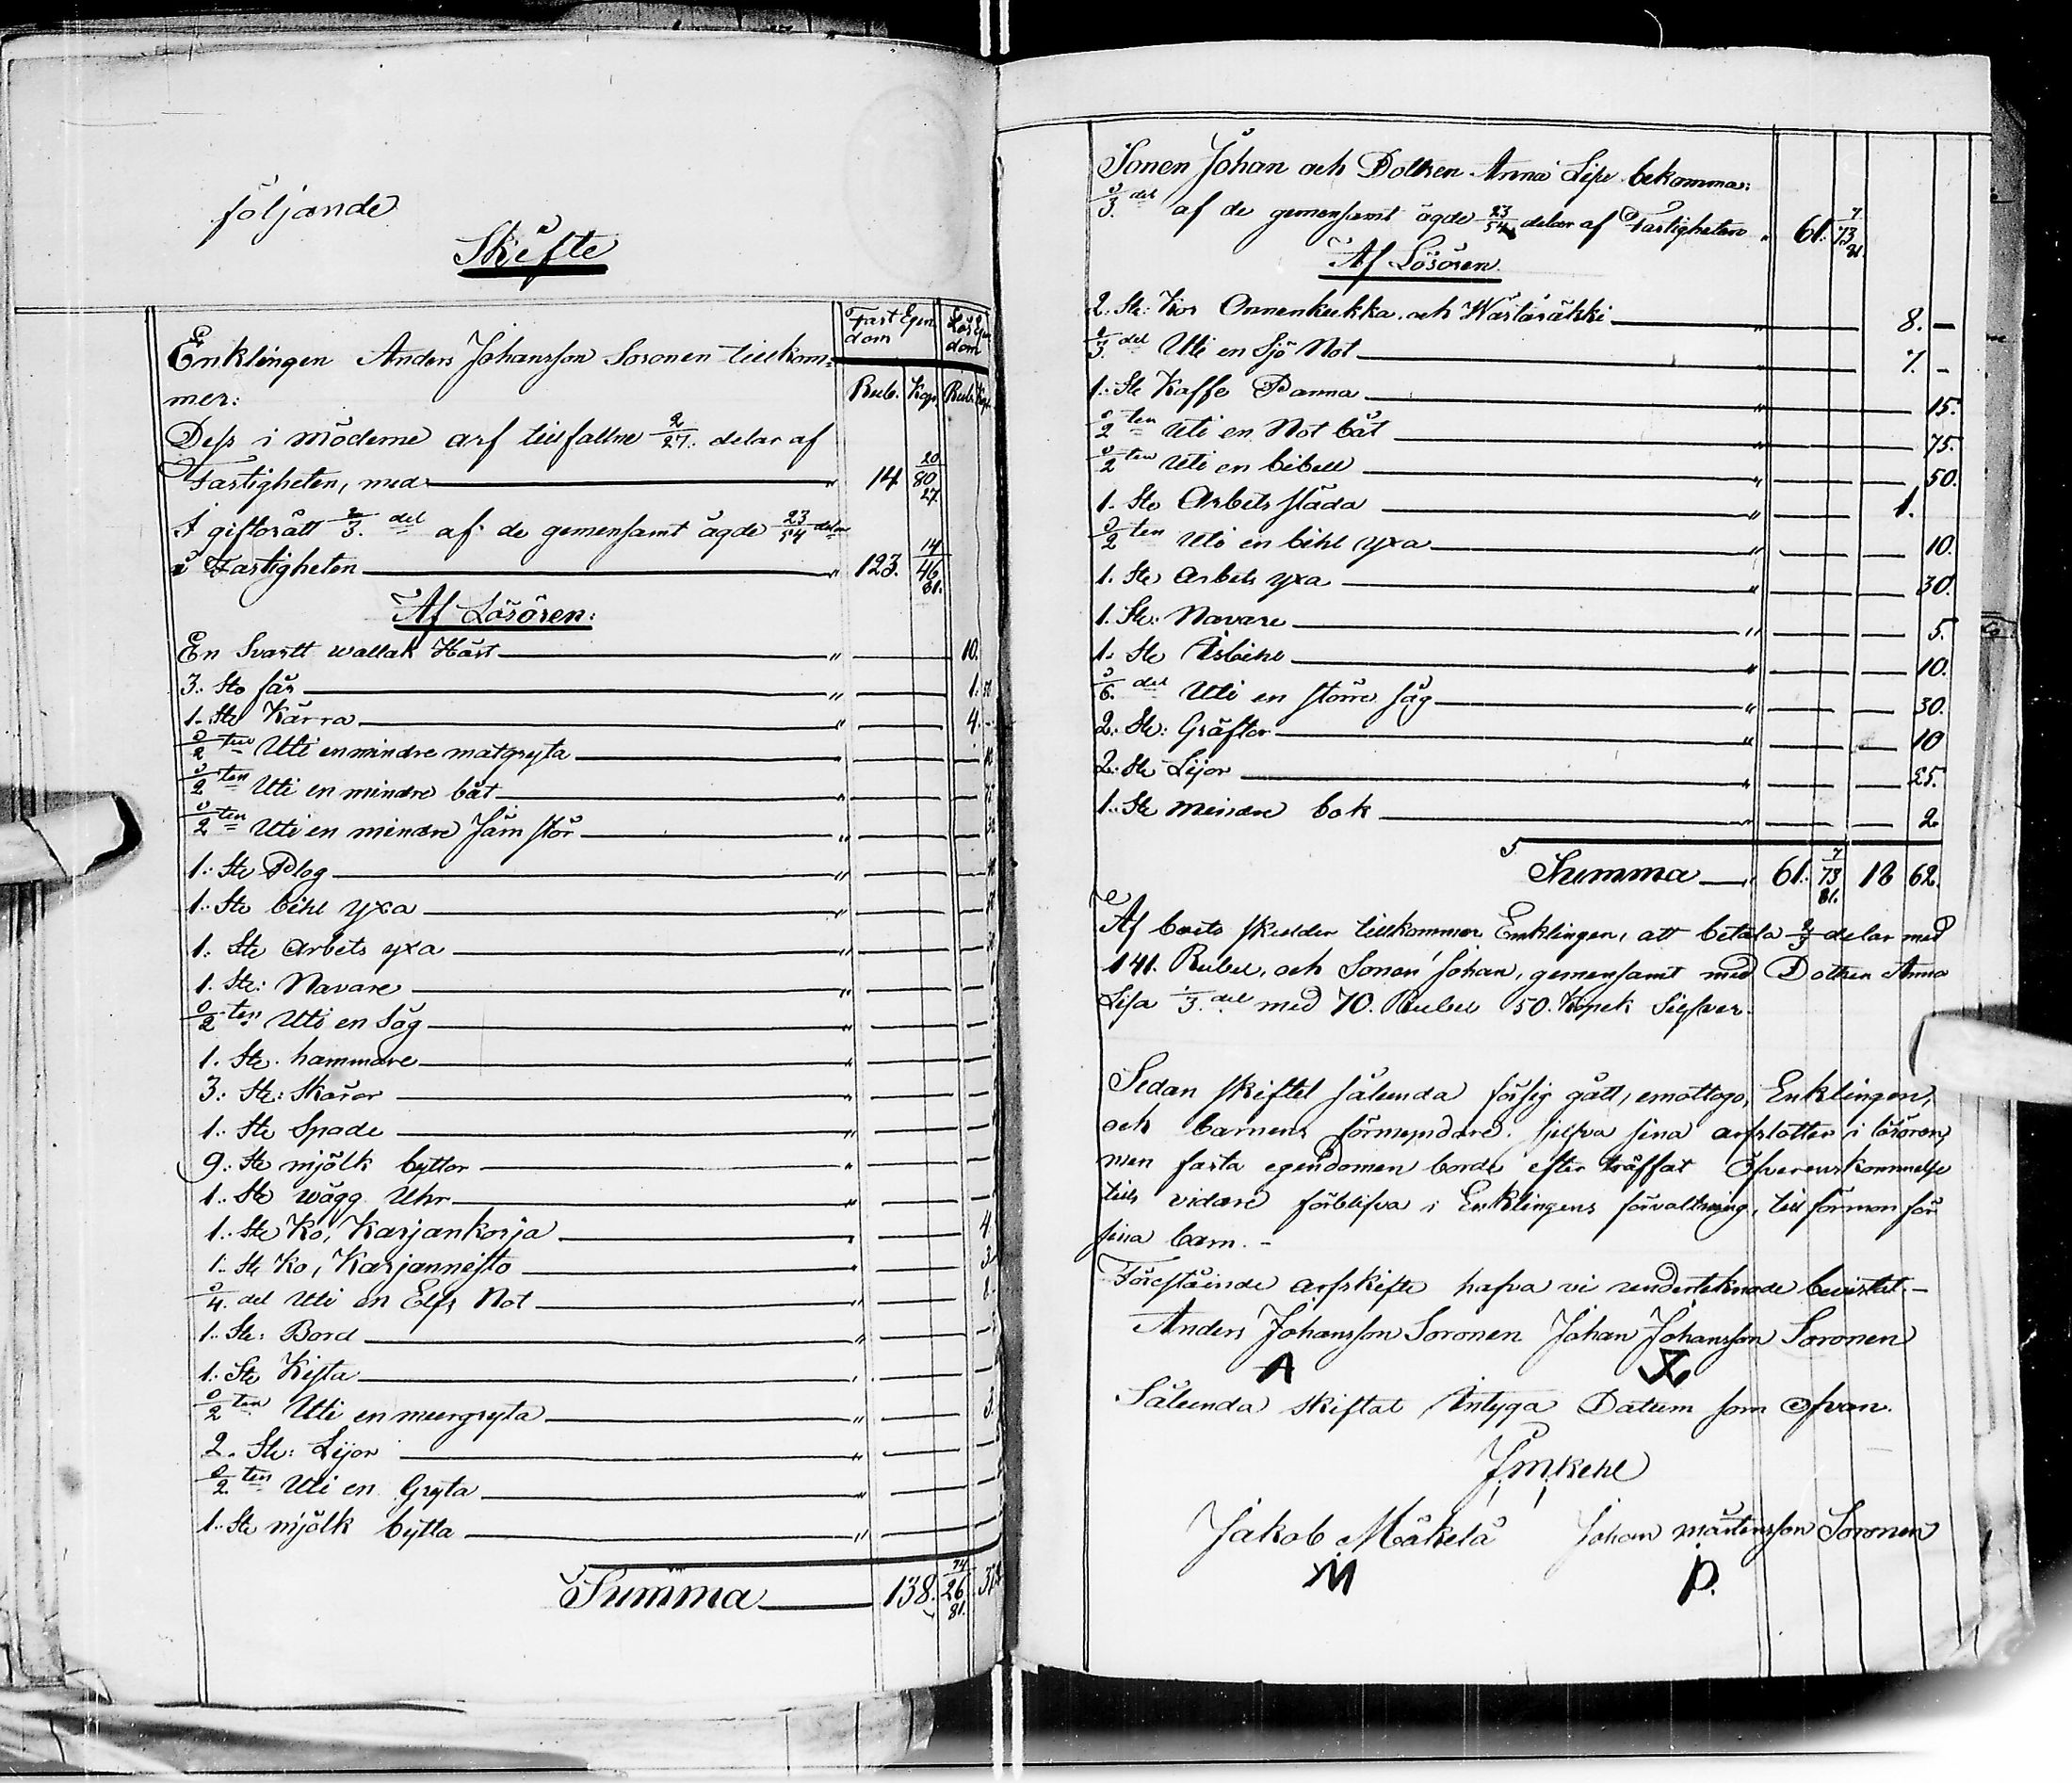 följande
Skifte
Fast Egen dom Lös Egen dom
Enklingen Anders Johansson Soronen tillkom=
mer: Rub. Kop. Rub. Kop.
Dess i möderne arf tillfallne 2/27. delar af
Fastigheten, med " 14 80 20/27
I giftorätt 2/3. del af de gemensamt ägde 23/54 delar
i Fastigheten " 123. 46 14/81.
Af Lösören:
En Svartt wallak Häst " 10.
3. Ste får " 1. 50
1. Ste Kärra " 4. -
1/2 ten Uti en mindre matgryta "
1/2 ten Uti en mindre båt "
1/2 ten Uti en mindre Järn stör "
1. Ste Plog "
1. Ste bihl yxa "
1. Ste Arbets yxa "
1. Ste: Navare "
1/2 ten Uti en Såg "
1. Ste hammare "
3. Ste: Skäror "
1. Ste Spade "
9. Ste mjölk byttor "
1. Ste wägg Uhr "
1. Ste Ko, Karjankorja " 4
1. Ste Ko, Karjanneito " 3
1/4. del Uti en Elfs Not "
1. Ste: Bord "
1. Ste Kista "
1/2 ten Uti en muurgryta " 3.
2. Ste: Lijor "
1/2 ten Uti en Gryta "
1. Ste mjölk bytta "
Summa 138. 26 74/81.
Sonen Johan och Dottren Anna Lisa bekomma:
1/3. del af de gemensamt ägde 23/54 delar af Fastigheten " 61. 73 7/81.
Af Lösören.
2. Ste: Kor Onnenkukka och Wästäräkki " 8. -
1/3. del Uti en Sjö Not " 7. -
1. Ste Kaffe Panna " 15.
1/2 ten Uti en Not båt " 75.
1/2 ten Uti en bibell " 50.
1. Ste Arbets släda " 1.
1/2 ten Uti en bihl yxa " 10.
1. Ste Arbets yxa " 30.
1. Ste: Navare " 5.
1. Ste Isbihl " 10.
1/6. del Uti en större såg " 30.
2. Ste: Gräftor " 10
2. Ste Lijor " 25.
1. Ste mindre bok " 2.
Summa " 61. 73 7/81. 18 62.
Af boets skulder tillkommer Enklingen, att betala 2/3 delar med
141. Rubel, och Sonen Johan, gemensamt med Dottren Anna
Lisa 1/3. del med 70. Rubel 50. Kopek Silfver.
Sedan skiftet sålunda försig gått, emottogo, Enklingen,
och barnens förmyndare. sjelfva sina arfslotter i lösören,
men fasta egendomen borde efter träffat Öfverenskommelse
tills vidare förblifva i Enklingens förvaltning, till förmon för
sina barn. -
Förestående arfskifte hafva vi undertecknade bevistat. -
Anders Johansson Soronen Johan Johansson Soronen
A
Sålunda skiftat Intyga Datum som Ofvan.
Jakob Mäkelä Johan Mårtensson Soronen
M P.